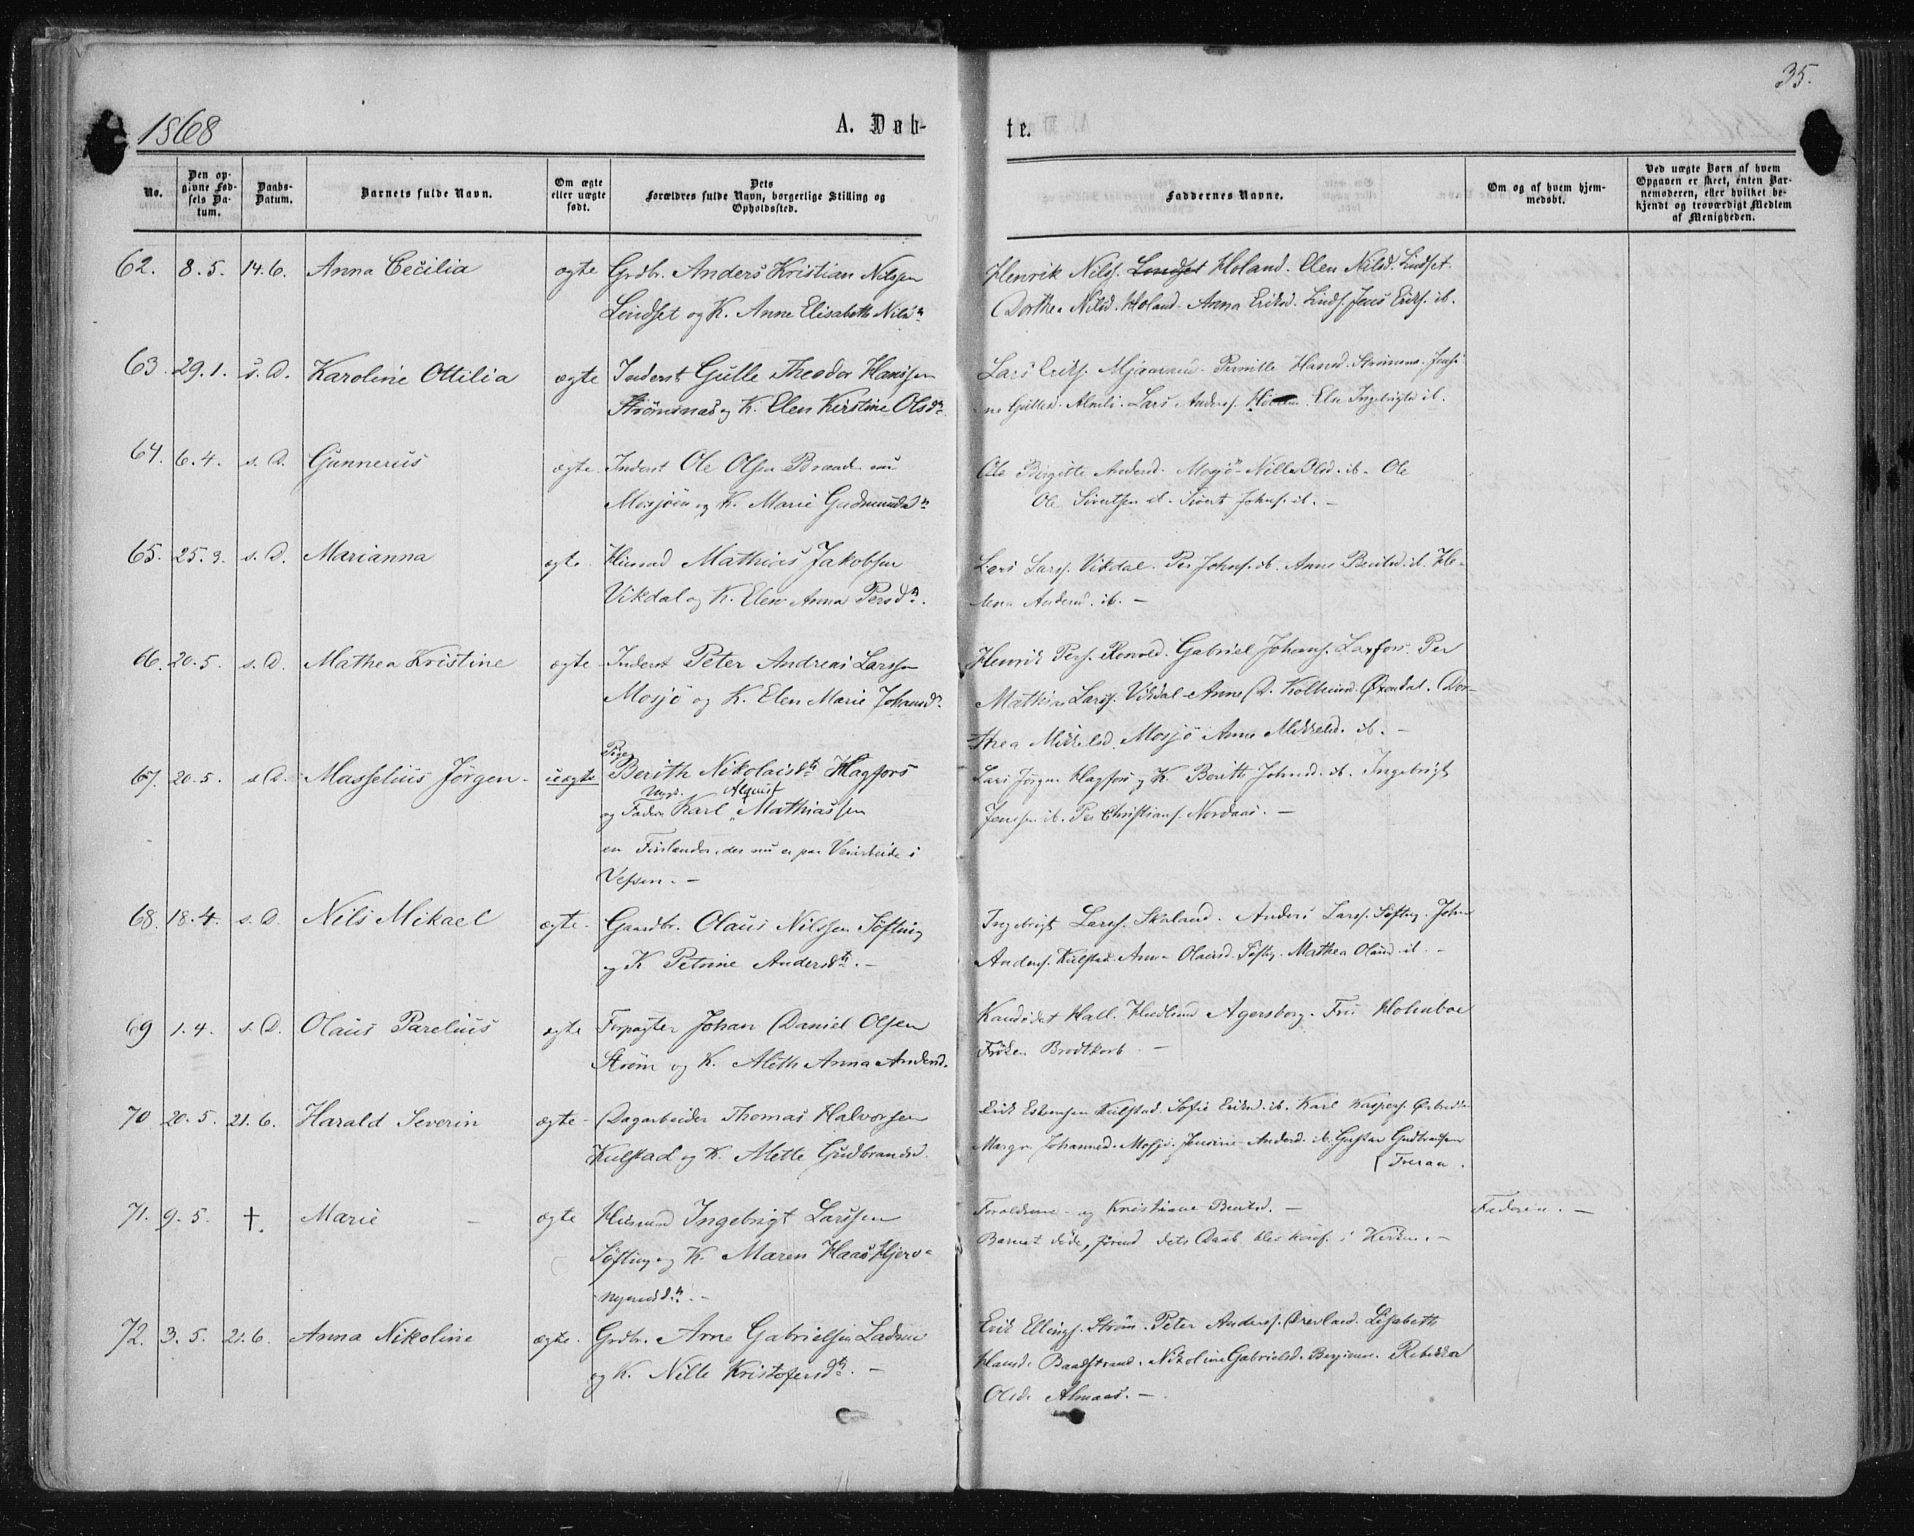 35.
1868
A. Døb-
te.
No.
Den op-
givne Fød-
sels Da-
tum.
Daabs-
Datum.
Barnets fulde Navn.
Om ægte
eller uægte
født.
Dets
Forældres fulde Navn, borgerlige Stilling og
Opholdssted.
Faddernes Navne.
Om og af hvem hjem-
medøbt.
Ved uægte Børn af hvem
Opgaven er skeet, enten Bar-
nemoderen, eller hvilket be-
kjendt og troværdigt Medlem
af Menigheden.
62. 8.5. 14.6. Anna Cecilia ægte Grdbr. Anders Kristian Nilssen
Lindset og K. Anne Elisabeth Nilsd.
Henrik Nilss. Lindset Holand. Elen Nilsd. Lindset.
Dorthea Nilsd. Holand. Anna Eriksd. Linds. Jens Eriks. ib.
63. 29.1. s.D. Karoline Ottilia ægte Inderst Gulle Theodor Hanssen
Strømsnas og K. Elen Kirstine Olsd.
Lars Eriks. Pernille Hansd. Jensi-
ne Gullesd. Almli. Lars Anders. Elen Ingebrigtsd. ib.
64. 6.4. s.D. Gunnerus ægte. Inderst Ole Olsen Brand nu
Mosjøen og K. Marie Gudmundsd.
Birgitte Andersd. Mosjø Nille Olsd. ib. Ole
Ole Sivertsen ib. Sivert Johns. ib. —
65. 25.3. s.D. Marianna ægte. Husmd Mathias Jakobsen
Vikdal og K. Elen Anna Persd.
Lars Larss. Vikdal. Per Johns. ib. Anne Bentsd. ib. He-
lena Andersd. ib. —
66. 20.5. s.D. Mathea Kristine ægte. Inderst Peter Andreas Larssen
Mosjø og K. Elen Marie Johansd.
Henrik Pers. Gabriel Johans. Laxfors. Per
Mathias Larss. Vikdal. Anne D. Øxendal. Dor-
thea Mikkelsd. Mosjø Anne Mikkelsd. ib. —
67. 20.5. s.D. Masselius Jørgen uægte Pige Berith Nikolaisd. Hagfors
Ungk. Alquist
og Fader Karl Mathiassen
en Finlænder, der nu er paa Veiarbeide i
Vefsen. —
Lars Jørgen Hagfors og K. Berith Johnsd. ib. Ingebrigt
Jenssen ib. Per Christians. Nordaas. —
68. 18.4. s.D. Nils Mikael ægte. Gaardbr. Olaus Nilssen Søfting
og K. Petrine Andersd. —
Ingebrigt Larss. Skaland. Anders Larss. Søfting. John
Anders. Kulstad. Anne Olausd. Søfting. Mathea Olausd. ib. —
69 1.4. s.D. Olaus Parelius ægte Forpagter Johan Daniel Olsen
Strøm og K. Aleth Anna Andersd.
Kandidat Hall. Agersborg. Fru Holmboe
Frøken Brodtkorb. —
70 20.5. 21.6. Harald Severin ægte. Dagarbeider Thomas Halvorsen
Kulstad og K. Mette Gudbrandsd.
Erik Kulstad. Sofie Eriksd. ib. Karl Kaspers.
Margr. Johannesd. Mosjø. Jensine Andersd. ib. Gustav
71. 9.5. †. Marie — ægte Husmd Ingebrigt Larssen
Søfting og K. Maren Haas Hjero-
nymusd. —
Forældrene og Kristiane Bentsd. —
Barnet døde, førend dets Daab blev konf. i Kirken. —
Faderen. —
72. 3.5. 21.6. Anna Nikoline ægte. Grdbr. Arne Gabrielsen
og K. Nille Kristofersd. —
Erik Ellings. Strøm. Peter Anders. Lisabeth
Hansd. Baadstrand. Nikoline Gabrielsd. Rebekka
Olsd. Almaas. —